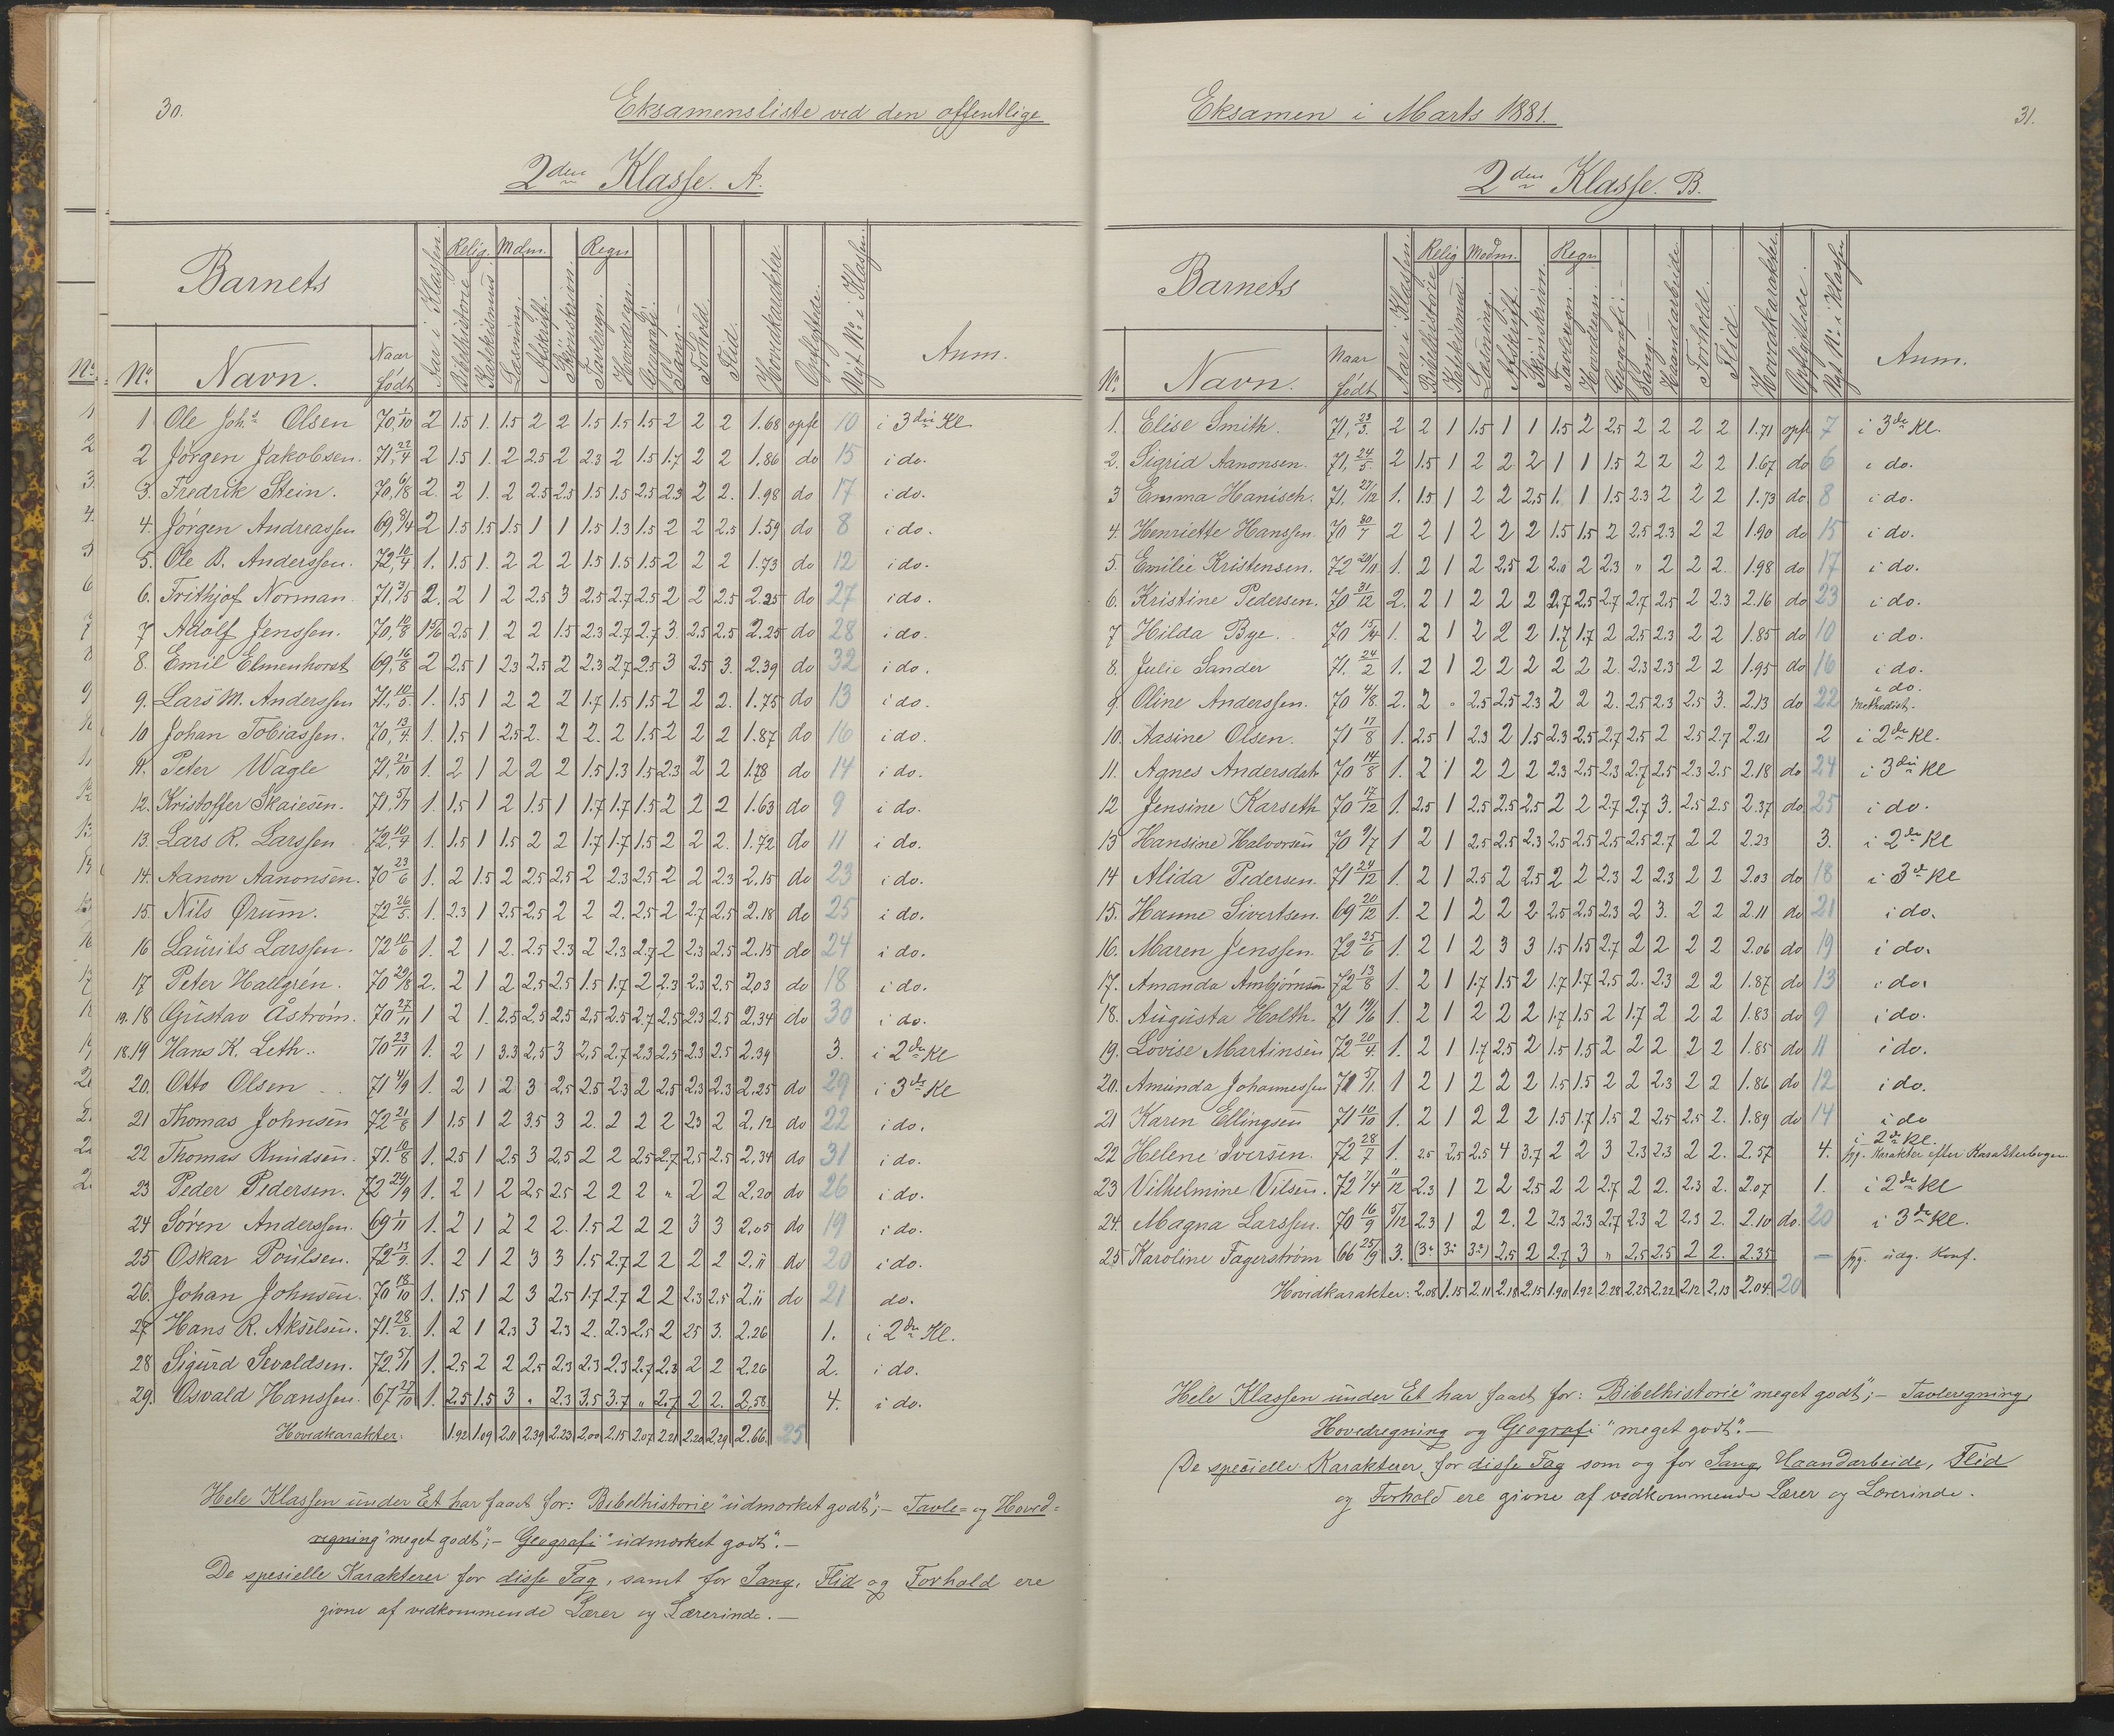 30.
Eksamensliste ved den offentlige
2den Klasse. A.
Barnets
Relig. Mdm. Regn
No Navn. Naar født Aar i Klassen. Bibelhistorie Katekismus Læsning. Afskrift. Skjønskrivn. Tavleregn. Hovedregn. Geografi. Sang. Forhold. Flid. Hovedkarakter. Opflyttede. Nyt No i Klassen. Anm.
1 Ole Johs Olsen 70, 1/10 2 1.5 1. 1.5 2 2 1.5 1.5 1.5 2 2 2 1.68 opfl 10 i 3die Kl
2 Jørgen Jakobsen. 71, 22/4 2 1.5 1. 2 2.5 2 2.3 2 1.5 1.7 2 2 1.86 do 15 i do.
3. Fredrik Stein. 70, 6/8 2. 2 1. 2 2.5 2.5 1.5 1.5 2.5 2.3 2 2. 1.98 do 17 i do.
4. Jørgen Andreassen 69, 8/4 2 1.5 1.5 1.5 1 1 1.5 1.3 1.5 2 2 2.5 1.59 do 8 i do.
5. Ole B. Anderssen. 72, 10/4 1. 1.5 1. 2 2 2 1.5 1.5 1.5 2 2 2 1.73 do 12 i do.
6. Frithjof Norman 71, 31/5 2. 2 1 2 2.5 3 2.5 2.7 2.5 2 2 2.5 2.25 do 27 i do.
7 Adolf Jenssen. 70, 10/8 1 5/6 2.5 1 2 2 1.5 2.3 2.7 2.7 3. 2.5 2.5 2.25 do 28 i do.
8. Emil Elmenhorst 69, 16/8 2 2.5 1 2.3 2.5 2 2.3 2.7 2.5 3 2.5 3. 2.39 do 32 i do.
9. Lars M. Anderssen 71, 10/5. 1. 1.5 1 2 2 2 1.7 1.5 1.5 2 2 2. 1.75 do 13 i do.
10 Johan Tobiassen. 70, 13/4 1. 1.5 1 2.5 2. 2 2. 2 1.5 2 2 2 1.87 do 16 i do.
11. Peter Wagle 71, 21/10 1. 2 1 2 2 2 1.5 1.3 1.5 2.3 2 2 1.78 do 14 i do.
12. Kristoffer Skaiesen. 71. 5/7 1. 1.5 1 2 1.5 1 1.7 1.7 1.5 2 2 2 1.63 do 9 i do.
13. Lars R. Larssen 72, 10/4 1. 1.5 1 1.5 2 2 1.7 1.7 1.5 2 2 2. 1.72 do 11 i do.
14. Aanon Aanonsen. 70 23/6 1. 2 1.5 2 2.5 2.5 2 2.3 2.5 2 2 2.3 2.15 do 23 i do.
15. Nils Ørum. 72 26/5. 1. 2.3 1 2.5 2.5 2 2 2. 2.5 2 2.7 2.5 2.18 do 25 i do.
16 Laurits Larssen. 72 10/6 1. 2 1 2. 2.5 2.3 2 2.3 2.7 2 2.3 2.5 2.15 do 24 i do.
17 Peter Hallgrén. 70 29/8 2. 2 1 2 2.5 2.5 1.5 1.7 2 2.3 2.3 2.5 2,03 do 18 i do.
19. 18 Gustav Åstrøm. 70 27/11 1 2 1. 2.5 2.5 2.5 2.5 2.5 2.7 2.5 2.3 2.5 2.34 do 30 i do.
18. 19 Hans K. Leth. 70 23/11 1. 2 1 3.3 2.5 3 2.5 2.7 2.3 2.5 2.3 2.5 2.39 3. i 2den Kl
20. Otto Olsen 71 4/9 1. 2 1 2 3 2.5 2.5 2.3 2 2.5 2.3 2.3 2.25 do 29 i 3die Kl
21 Thomas Johnsen 72 21/8 1 1.5 1 2 3.5 3 2. 2 2 2 2.3 2 2.12 do 22 i do.
22 Thomas Knudsen. 71. 10/8 1. 2.5 1 2.5 3 2.5 2 2 2.5 2.7 2.5 2.5 2.34 do 31 i do.
23 Peder Pedersen. 72 29/9 1. 2 1 2 2.5 2.5 2 2 2 " 2 2 2.20 do 26 i do.
24 Søren Anderssen. 69 1/11 1. 2 1 2 2 2. 1.5 2 2 2 3 3 2.05 do 19 i do.
25 Oskar Poulsen. 72 13/9. 1. 2 1 2 3 3 1.5 2.7 2 2 2 2 2.11 do 20 i do.
26. Johan Johnsen. 70 18/10 1. 1.5 1 2 3 2.5 1.7 2.7 2 2 2.3 2.5 2.11 do 21 do.
27 Hans R. Akselsen. 71. 28/2. 1. 2 1 2.3 3 2.3 2. 2.3 2.5 2 2.5 3. 2.26 1. i 2den Kl.
28 Sigurd Sevaldsen. 72. 5/11 1. 2.5 2 2 2.5 2.3 2.3 2.3 2.7 2.3 2 2 2.26 2. i do.
29. Osvald Hanssen. 67 27/10 1. 2.5 1.5 3 " 2.3 3.5 3.7 " 2.7 2 2. 2.58 4. i do.
Hovedkarakter: 1.92 1.09 2.11 2.39 2.23 2.00 2.15 2.07 2.21 2.20 2.29 2.66. 25
Hele Klassen under Et har faaet for: Bibelhistorie "udmærket godt"; – Tavle= og Hoved=
regning "meget godt"; – Geografi "udmærket godt". –
De spesielle Karakterer for disse Fag, samt for Sang, Flid og Forhold ere
givne af vedkommende Lærer og Lærerinde. –
Eksamen i Marts 1881.
31.
2den Klasse. B.
Barnets
Relig Modm. Regn
No Navn. Naar født Aar i Klassen. Bibelhistorie Katekismus Læsning. Afskrift. Skjønskrivn. Tavleregn. Hovedregn. Geografi. Sang. Haandarbeide Forhold. Flid Hovedkarakter. Opflyttede. Nyt No i Klassen Anm.
1. Elise Smith. 71, 23/3. 2 2 1 1.5 1 1 1.5 2 2.5 2 2 2 2 1.71 opfl 7 i 3die Kl.
2. Sigrid Aanonsen. 71, 24/5 2 1.5 1 2 2 2 1 1 1.5 2 2 2 2 1.67 do 6 i do.
3 Emma Hanisch. 71, 27/12 1. 1.5 1 2 2 2.5 1. 1 1.5 2.3 2 2 2 1.73 do 8 i do.
4. Henriette Hanssen. 70 30/7 2 2 1 2 2 2 1.5 1.5 2 2.5 2.3 2 2 1.90 do 15 i do.
5. Emilie Kristensen. 72 20/11 1. 2 1 2 2.5 2 2.0 2 2.3 " 2 2 2. 1.98 do 17 i do.
6. Kristine Pedersen. 70 31/12 2. 2 1 2 2 2 2.7 2.5 2.7 2.7 2.5 2 2.3 2.16 do 23 i do.
7 Hilda Bye. 70 15/4 1. 2 1 2 2 2 1.7 1.7 2 2.5 2.3 2 2 1.85 do 10 i do.
8. Julie Sander 71. 24/2 1. 2 1 2 2 2 2 2 2. 2.3 2.3 2 2 1.95 do 16 i do.
9. Oline Anderssen. 70 4/8. 2. 2 " 2.5 2.5 2.3 2 2 2. 2.5 2.3 2.5 3. 2.13 do 22 i do. Methodist.
10. Aasine Olsen. 71 17/8 1. 2.5 1 2.3 2 1.5 2.3 2.5 2.7 2.5 2 2.5 2.7 2.21 2 i 2den Kl.
11. Agnes Andersdat 70 14/8 1. 2 1 2 2 2 2.3 2.5 2.3 2.7 2.5 2.3 2.5 2.18 do 24 i 3die Kl
12 Jensine Karseth 70 17/12 1. 2.5 1 2.5 2.5 2.5 2 2 2.7 2.7 3. 2.5 2.5 2.37 do 25 i do.
13 Hansine Halvorsen 70 9/7 1 2 1 2.5 2.5 2.3 2.5 2.5 2.5 2.5 2.7 2 2 2.23 3. i 2den Kl
14 Alida Pedersen. 71 24/12 1. 2 1 2.5 2 2.5 2 2 2.3 2 2.3 2 2 2.03 do 18 i 3die Kl
15. Hanne Sivertsen. 69 20/12 1. 2 1 2 2 2 2.5 2.5 2.3 2 3. 2 2 2.11 do 21 i do.
16. Maren Jenssen. 72 25/6 1. 2 1 2 3 3 1.5 1.5 2.7 2 2 2 2 2.06 do 19 i do.
17. Amanda Ambjørnsen 72 13/8 1. 2 1 1.7 1.5 2 1.7 1.7 2.5 2. 2.3 2 2 1.87 do 13 i do.
18. Augusta Holth. 71 19/6 1. 2 1 2 2 2 1.7 1.5 2 1.7 2 2 2 1.83 do 9 i do.
19. Lovise Martinsen 72 20/4. 1. 2 1 1.7 2.5 2 1.5 1.5 2 2 2 2 2 1.85 do 11 i do.
20. Amunda Johannessen 71 5/11. 1 2 1 2 2 2 1.5 1.5 2 2 2.3 2 2 1.86 do 12 i do.
21 Karen Ellingsen 71 10/10 1. 2 1 2 2 2 1.5 1.7 1.5 2 2.5 2.5 2. 1.89 do 14 i do
22 Helene Iversen. 72 28/7 1. 2.5 2.5 2.5 4 3.7 2 2 3 2.3 2.3 2 2. 2.57 4. i 2den Kl. Karakter efter Karakterbogen
23 Vilhelmine Vilsen. 72 7/4 11/12 2.3 1 2 2 2.5 2 2 2.7 2 2. 2.3 2. 2.07 1. i 2den Kl
24. Magna Larssen. 70 16/9 5/12 2.3 1 2 2. 2 2.3 2.3 2.7 2.3 2 2.3 2. 2.10 do. 20 i 3die Kl.
25 Karoline Fagerstrøm 66 25/9 3. (3÷ 3÷ 3÷) 2.5 2 2.7 3 " 2.5 2.5 2 2. 2.35 – udg. Konf.
Hovedkarakter: 2.08 1.15 2.11 2.18 2.15 1.90 1.92 2.28 2.25 2.22 2.12 2.13 2.04. 20
Hele Klassen under Et har faaet for: Bibelhistorie "meget godt"; – Tavleregning,
Hovedregning og Geografi "meget godt". –
De specielle Karakterer for disse Fag som og for Sang, Haandarbeide, Flid
og Forhold ere givne af vedkommende Lærer og Lærerinde.